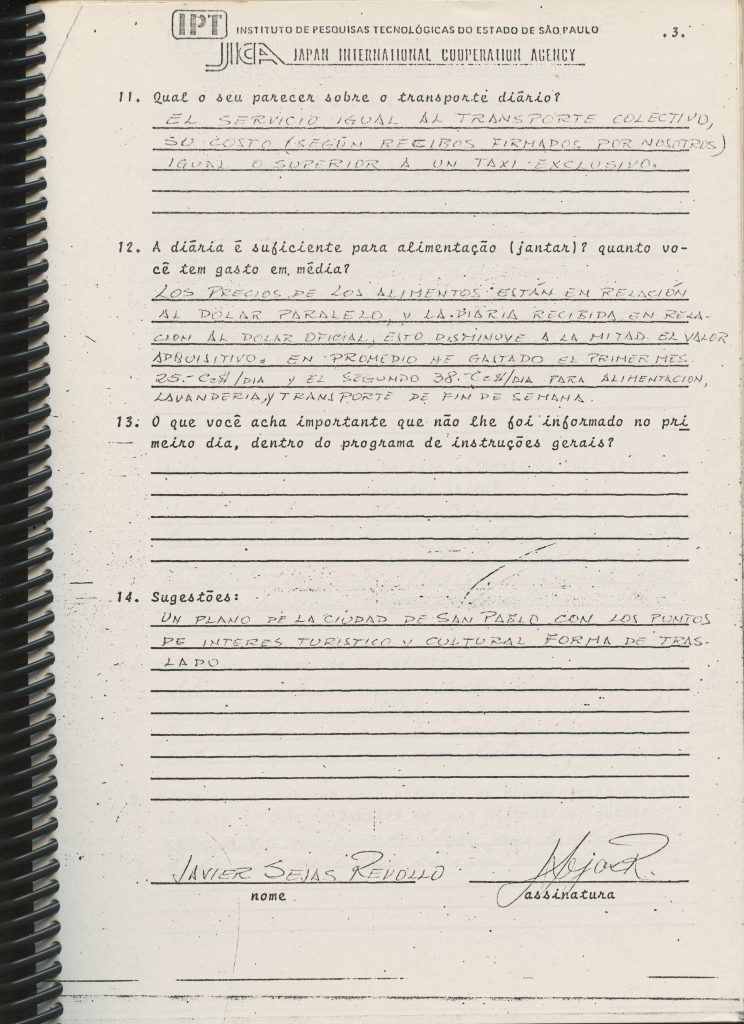 IPT INSTITUTO DE PESQUISAS TECNOLÓGICAS DO ESTADO DE SÃO PAULO .3.
JICA JAPAN INTERNATIONAL COOPERATION AGENCY
11. Qual o seu parecer sobre o transporte diário?
EL SERVICIO IGUAL AL TRANSPORTE COLECTIVO,
SU COSTO (SEGÚN RECIBOS FIRMADOS POR NOSOTROS)
IGUAL O SUPERIOR A UN TAXI EXCLUSIVO.
12. A diária é suficiente para alimentação (jantar)? quanto vo-
cê tem gasto em média?
LOS PRECIOS DE LOS ALIMENTOS ESTÁN EN RELACIÓN
AL DOLAR PARALELO, Y LA DIARIA RECIBIDA EN RELA-
CION AL DOLAR OFICIAL, ESTO DISMINUYE A LA MITAD EL VALOR
ADQUISITIVO. EN PROMEDIO HE GASTADO EL PRIMER MES
25.- Cz$/DIA Y EL SEGUNDO 38.- Cz$/DIA PARA ALIMENTACION,
LAVANDERIA, Y TRANSPORTE DE FIN DE SEMANA.
13. O que você acha importante que não lhe foi informado no pri
meiro dia, dentro do programa de instruções gerais?
14. Sugestões:
UN PLANO DE LA CIUDAD DE SAN PABLO CON LOS PUNTOS
DE INTERES TURISTICO Y CULTURAL FORMA DE TRAS-
LADO
JAVIER SEJAS REVOLLO
nome assinatura